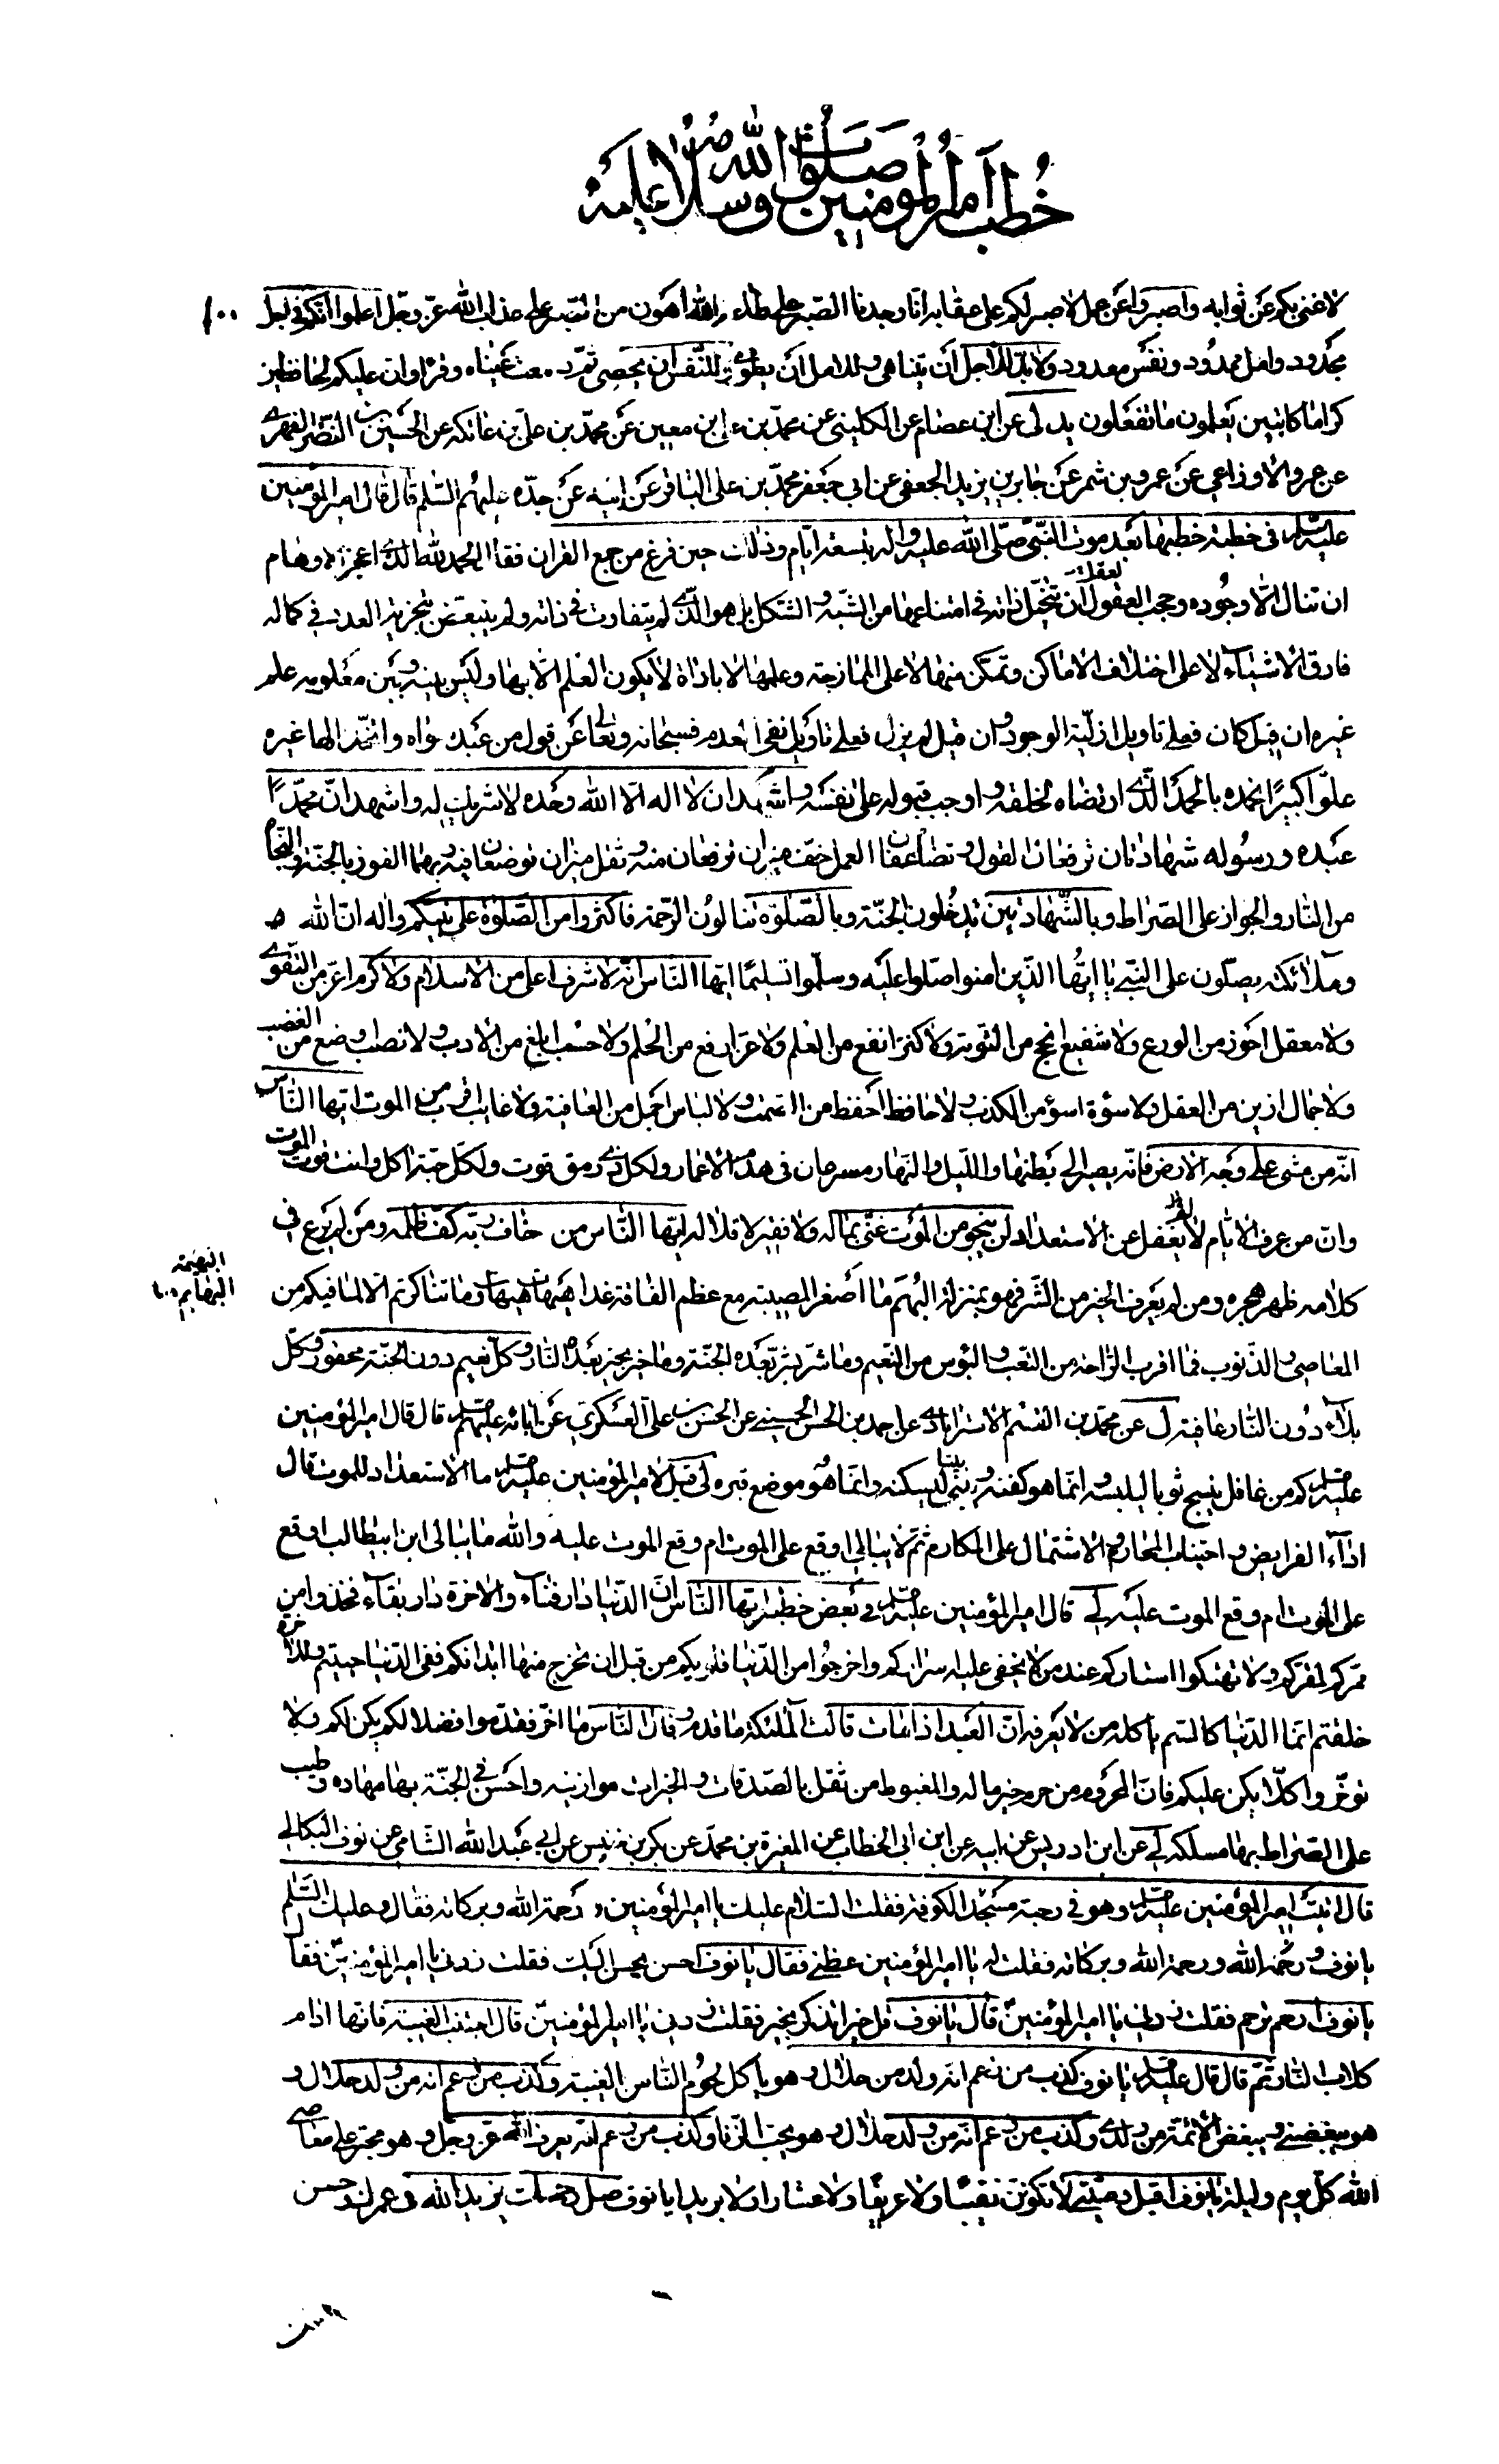 خُطب أمير المؤمنين صلوات الله وسلامه عليه
لا غنى بكم عن ثوابه واصبروا عن عمل لا صبر لكم على عقابه انا وجدنا الصبر على طاعة الله اهون من الصبر على عذاب الله عز وجل اعلموا انكم في اجل
محدود وامل ممدود ونفس معدود ولا بد للاجل أن يتناهى وللامل أن يطوى وللنفس ان يحصى ثم دمعت عيناه وقرأ وان عليكم لحافظين
كراما كاتبين يعلمون ما تفعلون يد لى عن ابن عصام عن الكليني عن محمد بن على بن معين عن محمد بن علي بن عاتكه عن الحسين بن النضر الفهرى
عن عمرو الاوزاعي عن عمرو بن شمر عن جابر بن يزيد الجعفي عن ابي جعفر محمد بن علي الباقر عن ابيه عن جده عليهم السلم قال قال امير المؤمنين
عليه السلم في خطبة خطبها بعد موت النبي صلى الله عليه واله بتسعة ايام وذلك حين فرغ من جمع القران فقال الحمد لله الذى اعجز الاوهام
ان تنال الا وجوده وحجب العقول أن تتخيل ذاته في امتناعها من الشبه والشكل بل هو الذى لم يتفاوت في ذاته ولم يتبعض بتجزية العدد في كماله
فارق الاشياء لا على اختلاف الاماكن وتمكن منها لا على الممازجة وعلمها لا باداة لا يكون العلم الا بها وليس بينه وبين معلومه علم
غيره ان قيل كان فعلى تاويل ازلية الوجود وان قيل لم يزل فعلى تاويل نفى العدم فسبحانه وتعالى عن قول من عبد سواه واتخذ الها غيره
علوا كبيرًا نحمده بالحمد الذى ارتضاه لخلقه واوجب قبوله على نفسه واشهد ان لا اله الا الله وحده لا شريك له واشهد ان محمدًا
عبده ورسوله شهادتان ترفعان القول وتضاعفان العمل خف ميزان ترفعان منه وثقل ميزان توضعان فيه وبهما الفوز بالجنة والنجاة
من النار والجواز على الصراط وبالشهادتين تدخلون الجنة وبالصلوة تنالون الرحمة فاكثروا من الصلوة على نبيكم واله ان الله
وملائكته يصلون على النبي يا ايها الذين امنوا صلوا عليه وسلموا تسليما ايها الناس انه لا شرف اعلى من الاسلام ولا كرم اعز من التقوى
ولا معقل احوز من الورع ولا شفيع انجح من التوبة ولا كنز انفع من العلم ولا عز ارفع من الحلم ولا حسب ابلغ من الأدب ولا نصب اوضع من الغضب
ولا جمال ازين من العقل ولا سوءة اسوء من الكذب ولا حافظ احفظ من الصمت ولا لباس اجمل من العافية ولا غايب اقرب من الموت ايها الناس
انه من مشى على وجه الارض فانه يصير الى بطنها والليل والنهار مسرعان في هدم الاعمار ولكل ذى رمق قوت ولكل حبة اكل وانت قوت الموت
وان من عرف الايام لم يغفل عن الاستعداد لن ينجو من الموت غني بماله ولا فقير لاقلاله ايها الناس من خاف ربه كف ظلمه ومن لم يرع في
كلامه ظهر هجره ومن لم يعرف الخير من الشر فهو بمنزلة البهم ما أصغر المصيبة مع عظم الفاقة غدا هيهات هيهات وما تناكرتم الا لما فيكم من
البهيمة
البهايم
المعاصي والذنوب فما اقرب الراحة من التعب والبؤس من النعيم وما شر بشر بعده الجنة وما خير بخير بعده النار وكل نعيم دون الجنة محقور وكل
بلاء دون النار عافية ل عن محمد بن القسم الاسترابادى عن احمد بن الحسن الحسيني عن الحسن بن علي العسكري عن ابائه عليهم السلم قال قال امير المؤمنين
عليه السلم كم من غافل ينسج ثوبا ليلبسه وانما هو كفنه ويبني بيتا ليسكنه وانما هو موضع قبره لى قيل لامير المؤمنين عليه السلم ما الاستعداد للموت قال
اداء الفرايض واجتناب المحارم والاشتمال على المكارم ثم لا يبالي اوقع على الموت ام وقع الموت عليه والله ما يبالي ابن ابيطالب اوقع
على الموت ام وقع الموت عليه لي قال امير المؤمنين عليه السلم في بعض خطبه ايها الناس ان الدنيا دار فناء والاخرة دار بقاء فخذوا من
ممركم لمقركم ولا تهتكوا استاركم عند من لا يخفى عليه اسراركم واخرجوا من الدنيا قلوبكم من قبل ان تخرج منها ابدانكم ففي الدنيا حييتم وللآخرة
خلقتم انما الدنيا كالسم ياكله من لا يعرفه ان العبد اذا مات قالت الملئكة ما قدم وقال الناس ما اخر فقدموا فضلا لكم يكن لكم ولا
توخروا كلا يكن عليكم فان المحروم من حرم خير ماله والمغبوط من ثقل بالصدقات والخيرات موازينه واحسن في الجنة بها مهاده وطيب
على الصراط بها مسلكه لي عن ابن ادريس عن ابيه عن ابن ابى الخطاب عن المغيرة بن محمد عن بكر بن خنيس عن ابي عبد الله الشامي عن نوف البكالي
قال اتيت امير المؤمنين عليه السلم وهو في رحبة مسجد الكوفة فقلت السلام عليك يا امير المؤمنين ورحمة الله وبركاته فقال وعليك السلم
يا نوف ورحمة الله وبركاته فقلت له يا امير المؤمنين عظني فقال يا نوف احسن يحسن اليك فقلت زدني يا امير المؤمنين فقال
يا نوف ارحم ترحم فقلت زدني يا امير المؤمنين قال يا نوف قل خيرا تذكر بخير فقلت زدني يا امير المؤمنين قال اجتنب الغيبة فانها ادام
كلاب النار ثم قال قال عليه السلم يا نوف كذب من زعم انه ولد من حلال وهو ياكل لحوم الناس بالغيبة وكذب من زعم انه من ولد حلال و
هو يبغضني ويبغض الأئمة من ولدى وكذب من زعم انه من ولد حلال وهو يحب الزنا وكذب من زعم انه يعرف الله عز وجل وهو مجتر على معاصي
الله كل يوم وليلة يا نوف اقبل وصيتي لا تكونن نقيبا ولا عريفا ولا عشارا ولا بريدا يا نوف صل رحمك يزيد الله في عمرك وحسن